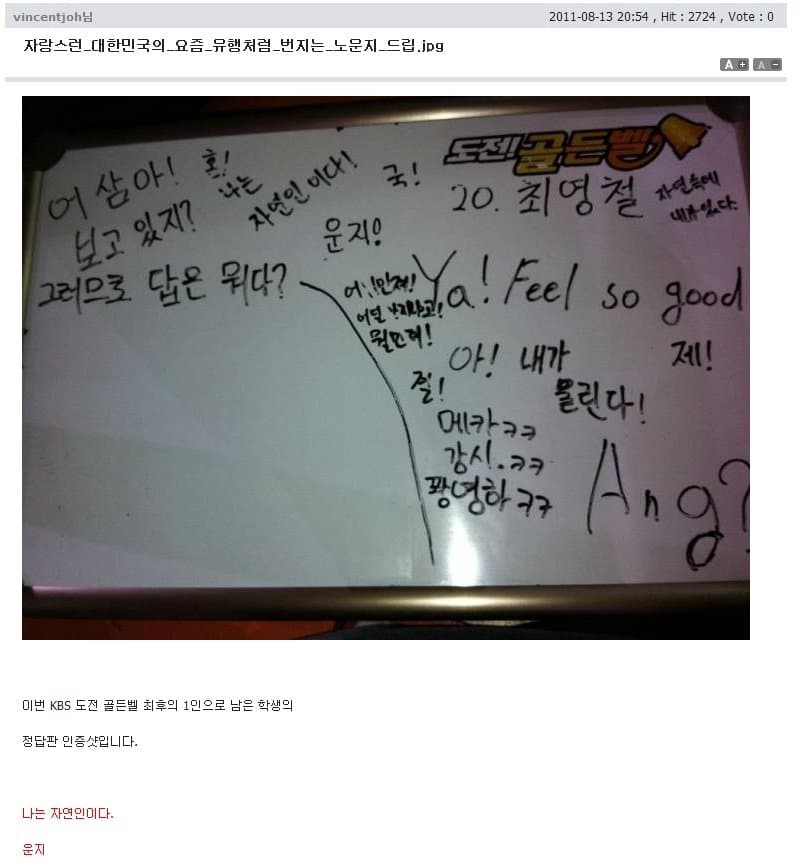 vincentjoh님
2011-08-13 20:54 , Hit : 2724 , Vote : 0
자랑스런_대한민국의_요즘_유행처럼_번지는_노운지_드립.jpg
A +
A -
도전! 골든벨
어 삼아! 혼!
나는
자연인 이다!
국!
20. 최영철
자연속에
내가 있다.
보고 있지?
운지!
그러므로 답은 뭐다?
Ya! Feel so good
아! 내가
제!
즐!
몰린다!
메카ㅋㅋ
강시.ㅋㅋ
꽝영하ㅋㅋ
Ang?
이번 KBS 도전 골든벨 최후의 1인으로 남은 학생의
정답판 인증샷입니다.
나는 자연인이다.
운지